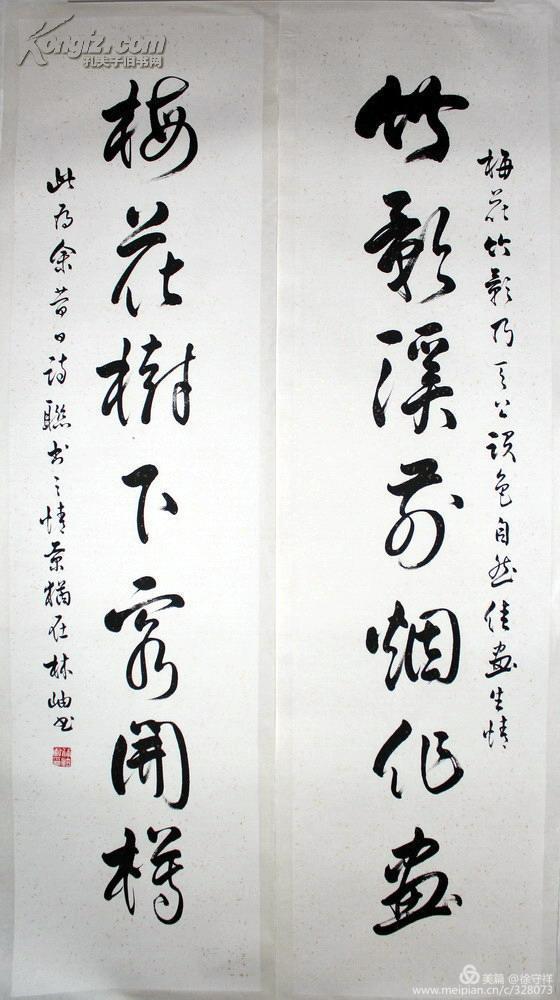 梅花竹影乃天公设色自然佳画生情
竹影溪前烟作画
梅花树下客開樽
此为余昔日詩聯书之情景犹在林岫书
Kongfz.com
孔夫子旧书网
美篇 @徐守祥
www.meipian.cn/c/328073